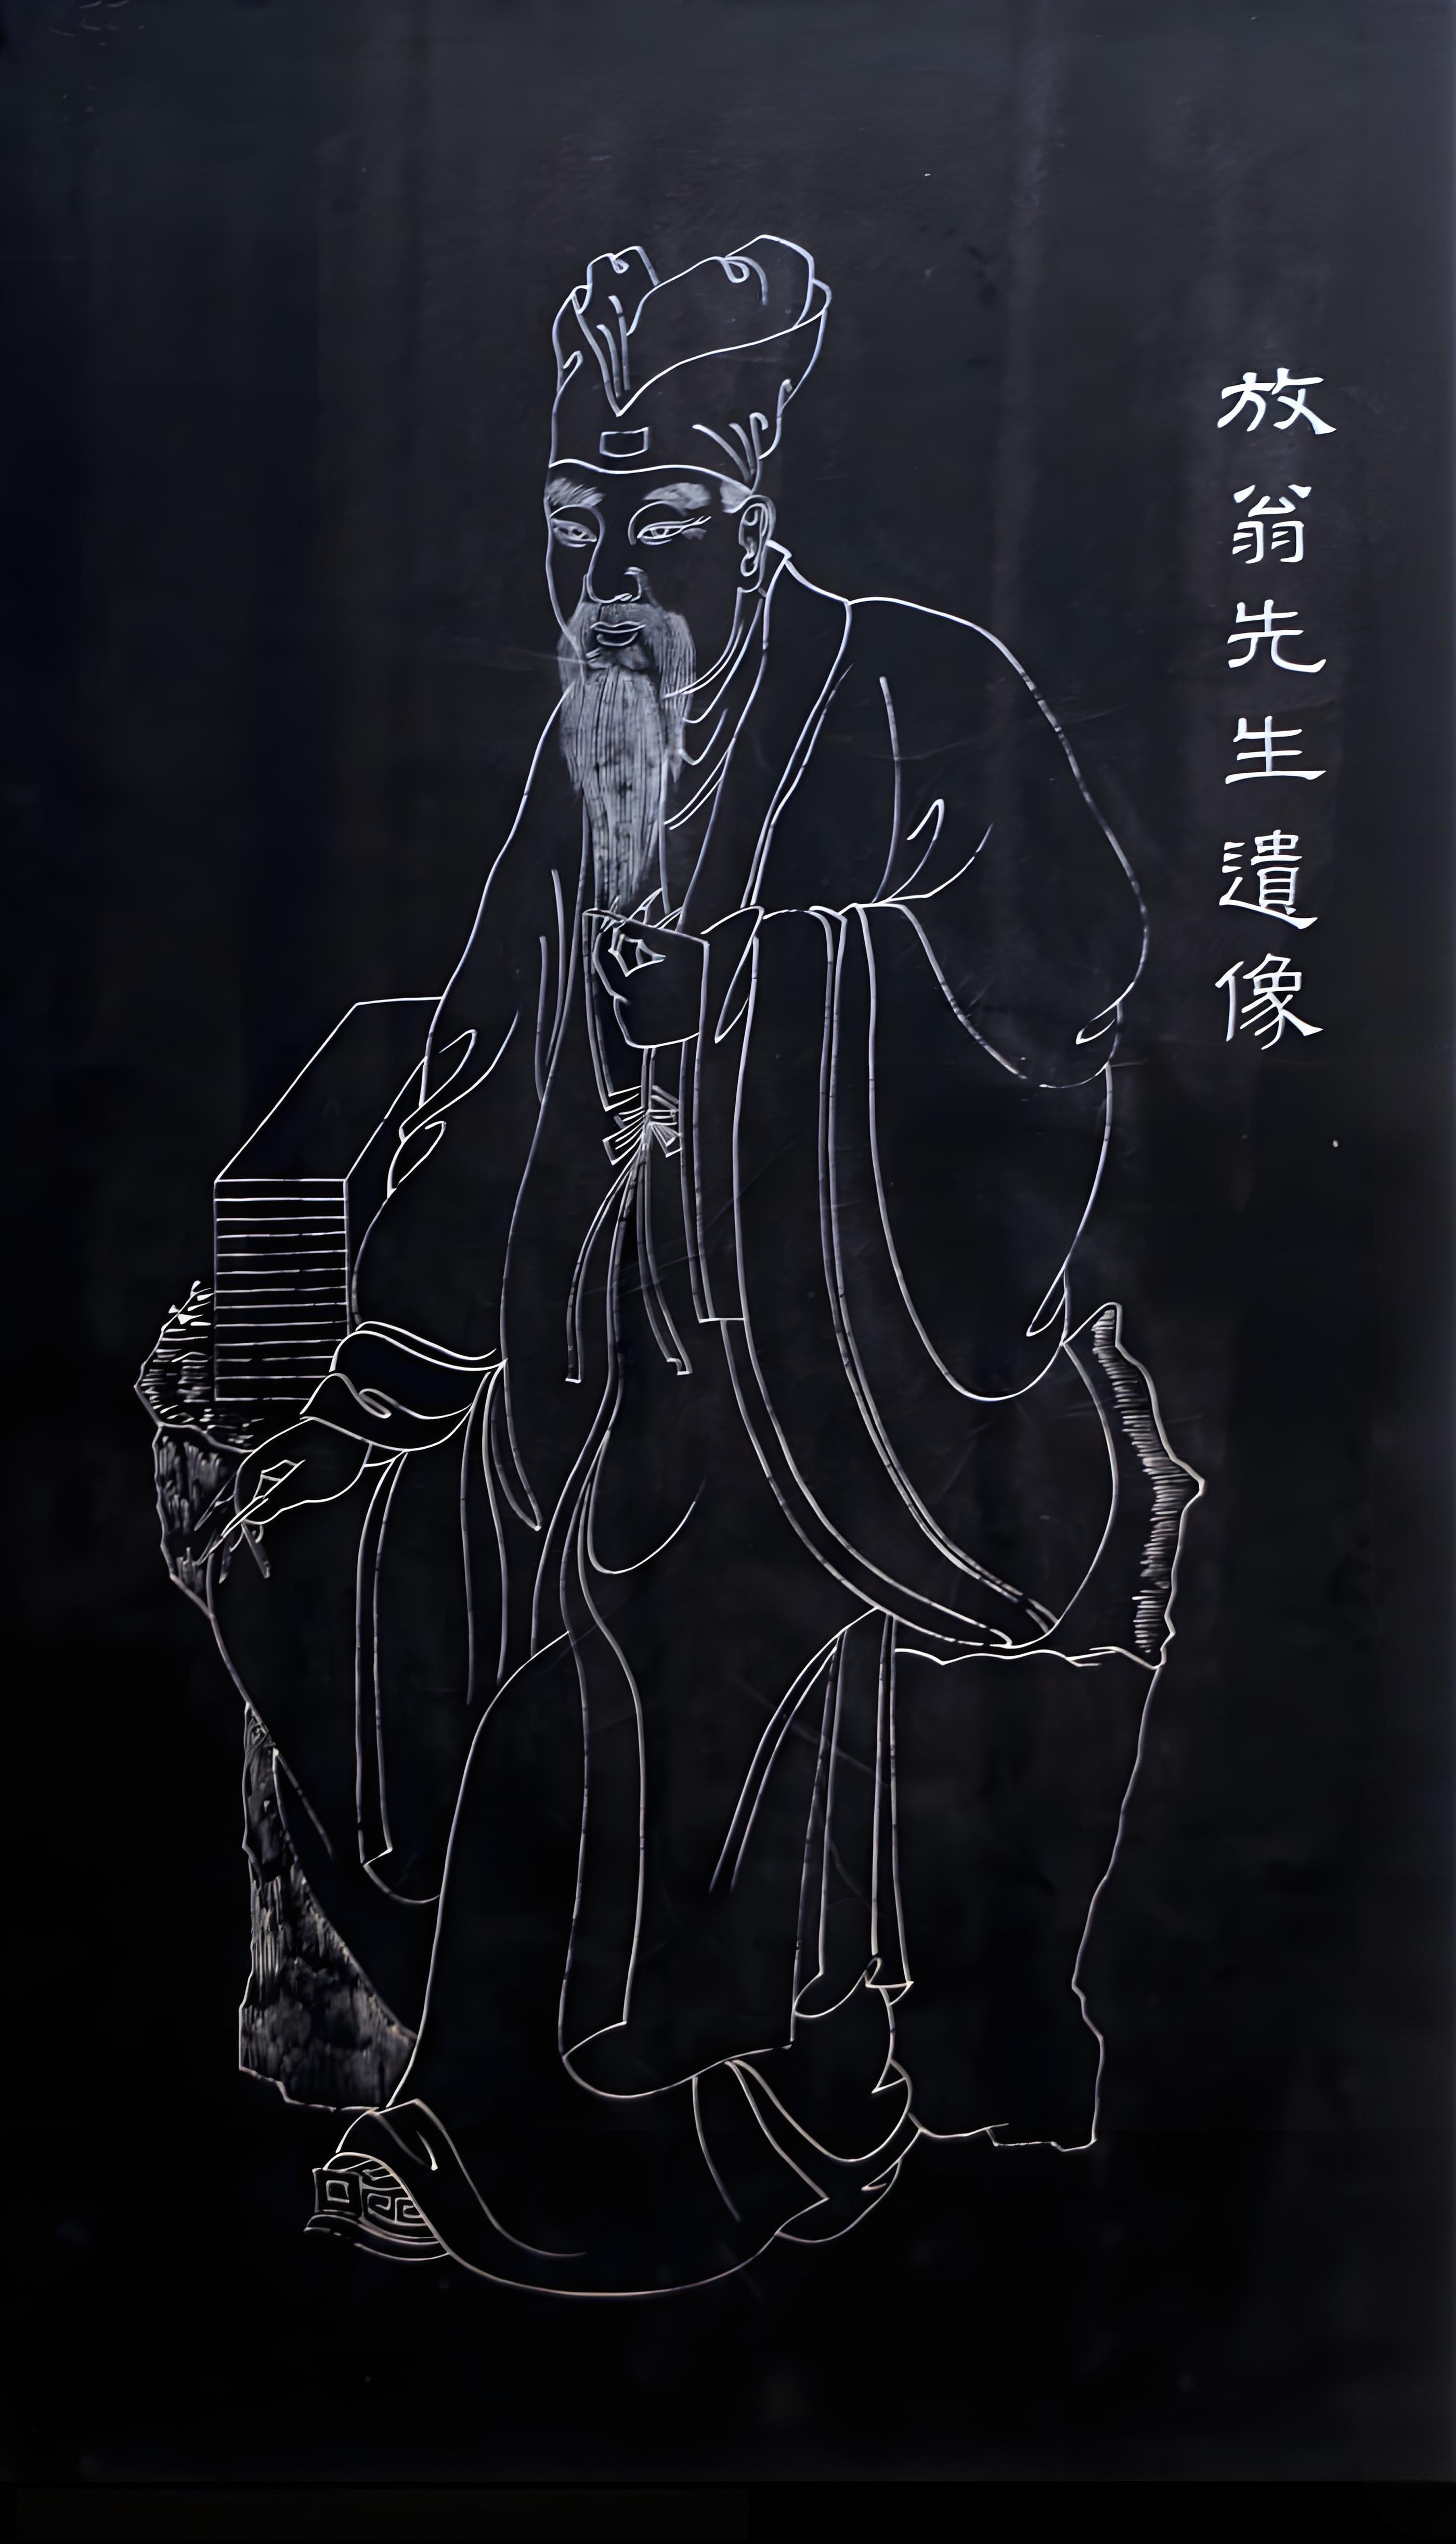 放翁先生遺像